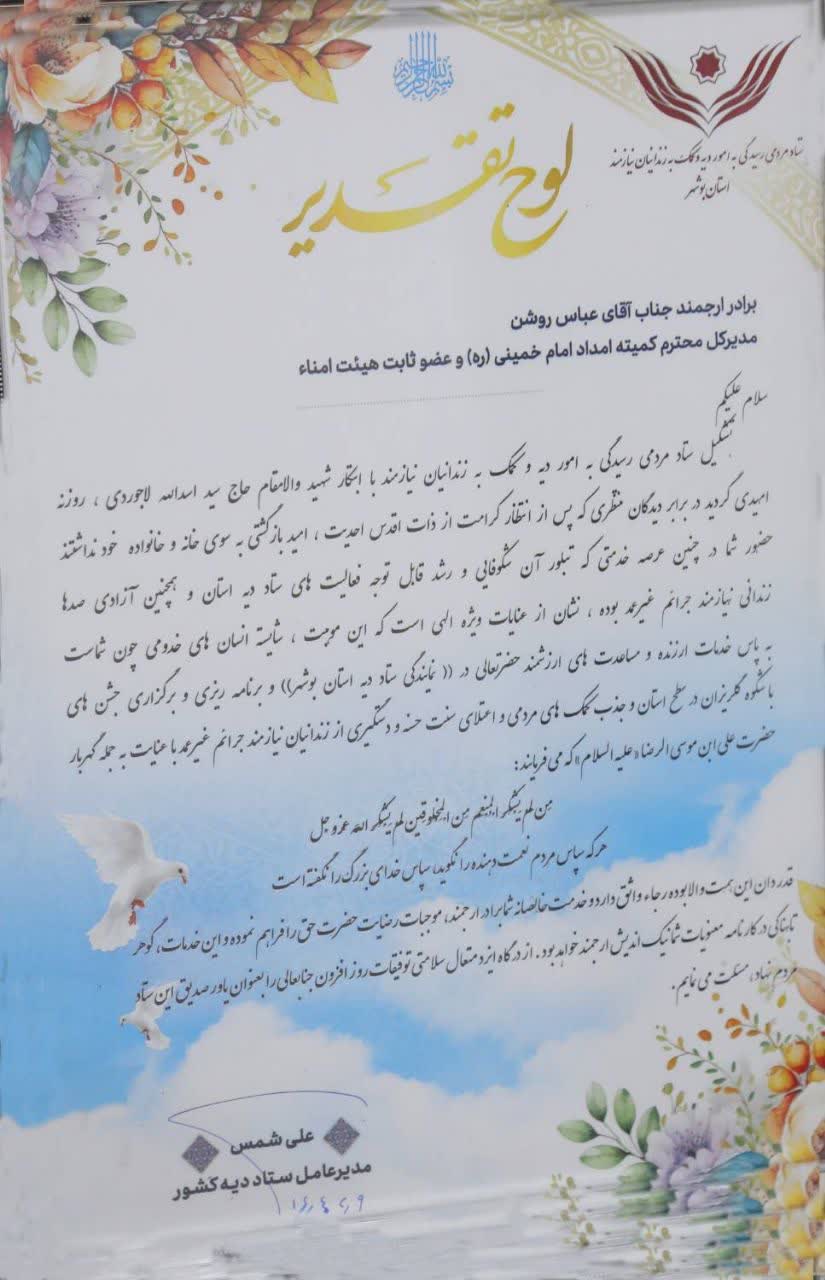 بسم الله الرحمن الرحیم
ستاد مردمی رسیدگی به امور دیه و کمک به زندانیان نیازمند
استان بوشهر
لوح تقدیر
برادر ارجمند جناب آقای عباس روشن
مدیرکل محترم کمیته امداد امام خمینی (ره) و عضو ثابت هیئت امناء
سلام علیکم
تشکیل ستاد مردمی رسیدگی به امور دیه و کمک به زندانیان نیازمند با ابتکار شهید والامقام حاج سید اسدالله لاجوردی ، روزنه
امیدی گردید در برابر دیدگان منتظری که پس از انتظار کرامت از ذات اقدس احدیت ، امید بازگشتی به سوی خانه و خانواده خود نداشتند
حضور شما در چنین عرصه خدمتی که تبلور آن شکوفایی و رشد قابل توجه فعالیت های ستاد دیه استان و همچنین آزادی صدها
زندانی نیازمند جرائم غیرعمد بوده ، نشان از عنایات ویژه الهی است که این موهبت ، شایسته انسان های خدومی چون شماست
به پاس خدمات ارزنده و مساعدت های ارزشمند حضرتعالی در (( نمایندگی ستاد دیه استان بوشهر)) و برنامه ریزی و برگزاری جشن های
با شکوه گلریزان در سطح استان و جذب کمک های مردمی و اعتلای سنت حسنه و دستگیری از زندانیان نیازمند جرائم غیرعمد با عنایت به جمله گهربار
حضرت علی ابن موسی الرضا «علیه السلام» که می فرمایند:
مِن لم یشکر المنعم مِن المخلوقین لم یشکر الله عزوجل
هرکه سپاس مردم نعمت دهنده را نگوید، سپاس خدای بزرگ را نگفته است
قدردان این همت والا بوده رجاء واثق دارد و خدمت خالصانه شما برادر ارجمند، موجبات رضایت حضرت حق را فراهم نموده و این خدمات، گوهر
تابناکی در کارنامه معنویات شما نیک اندیش ارجمند خواهد بود . از درگاه ایزد متعال سلامتی توفیقات روز افزون جنابعالی را بعنوان یاور صدیق این ستاد
مردم نهاد، مسئلت می نمایم .
علی شمس
مدیرعامل ستاد دیه کشور
۱۴۰۴,۲,۹